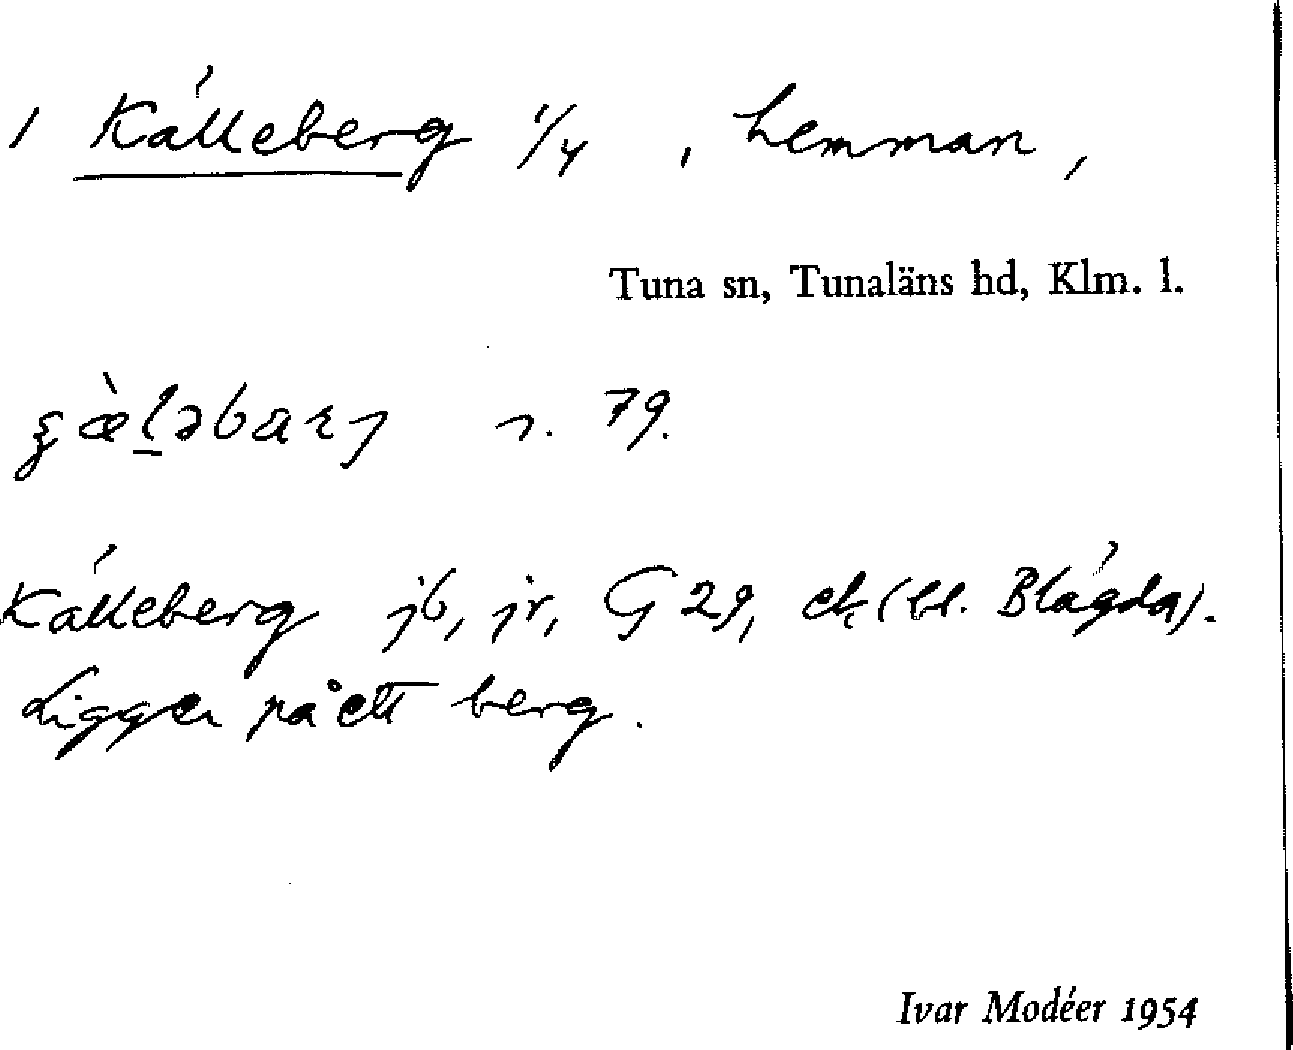 1 Källeberg 1/4 , hemman,
Tuna sn, Tunaläns hd, Klm. l.
s. 79.
Källeberg jb, jr, G 29, ek (bl. Blågda).
Ligger på ett berg.
Ivar Modéer 1954